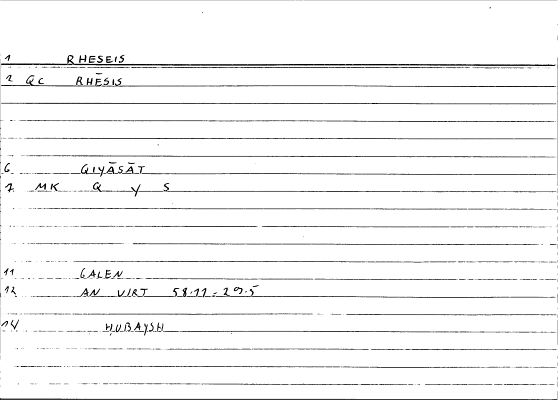 1 RHESEIS
2 QC RHĒSIS
6 QIYĀSĀT
7 MK Q Y S
11 GALEN
12 AN VIRT 58.11 = 29.5
14 ḤUBAYSH